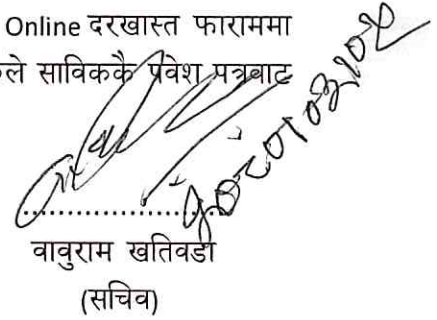 Online दरखास्त फाराममा
ले साविककै प्रवेश पत्रबाट
२०८०।०३।०५
......................
वावुराम खतिवडा
(सचिव)